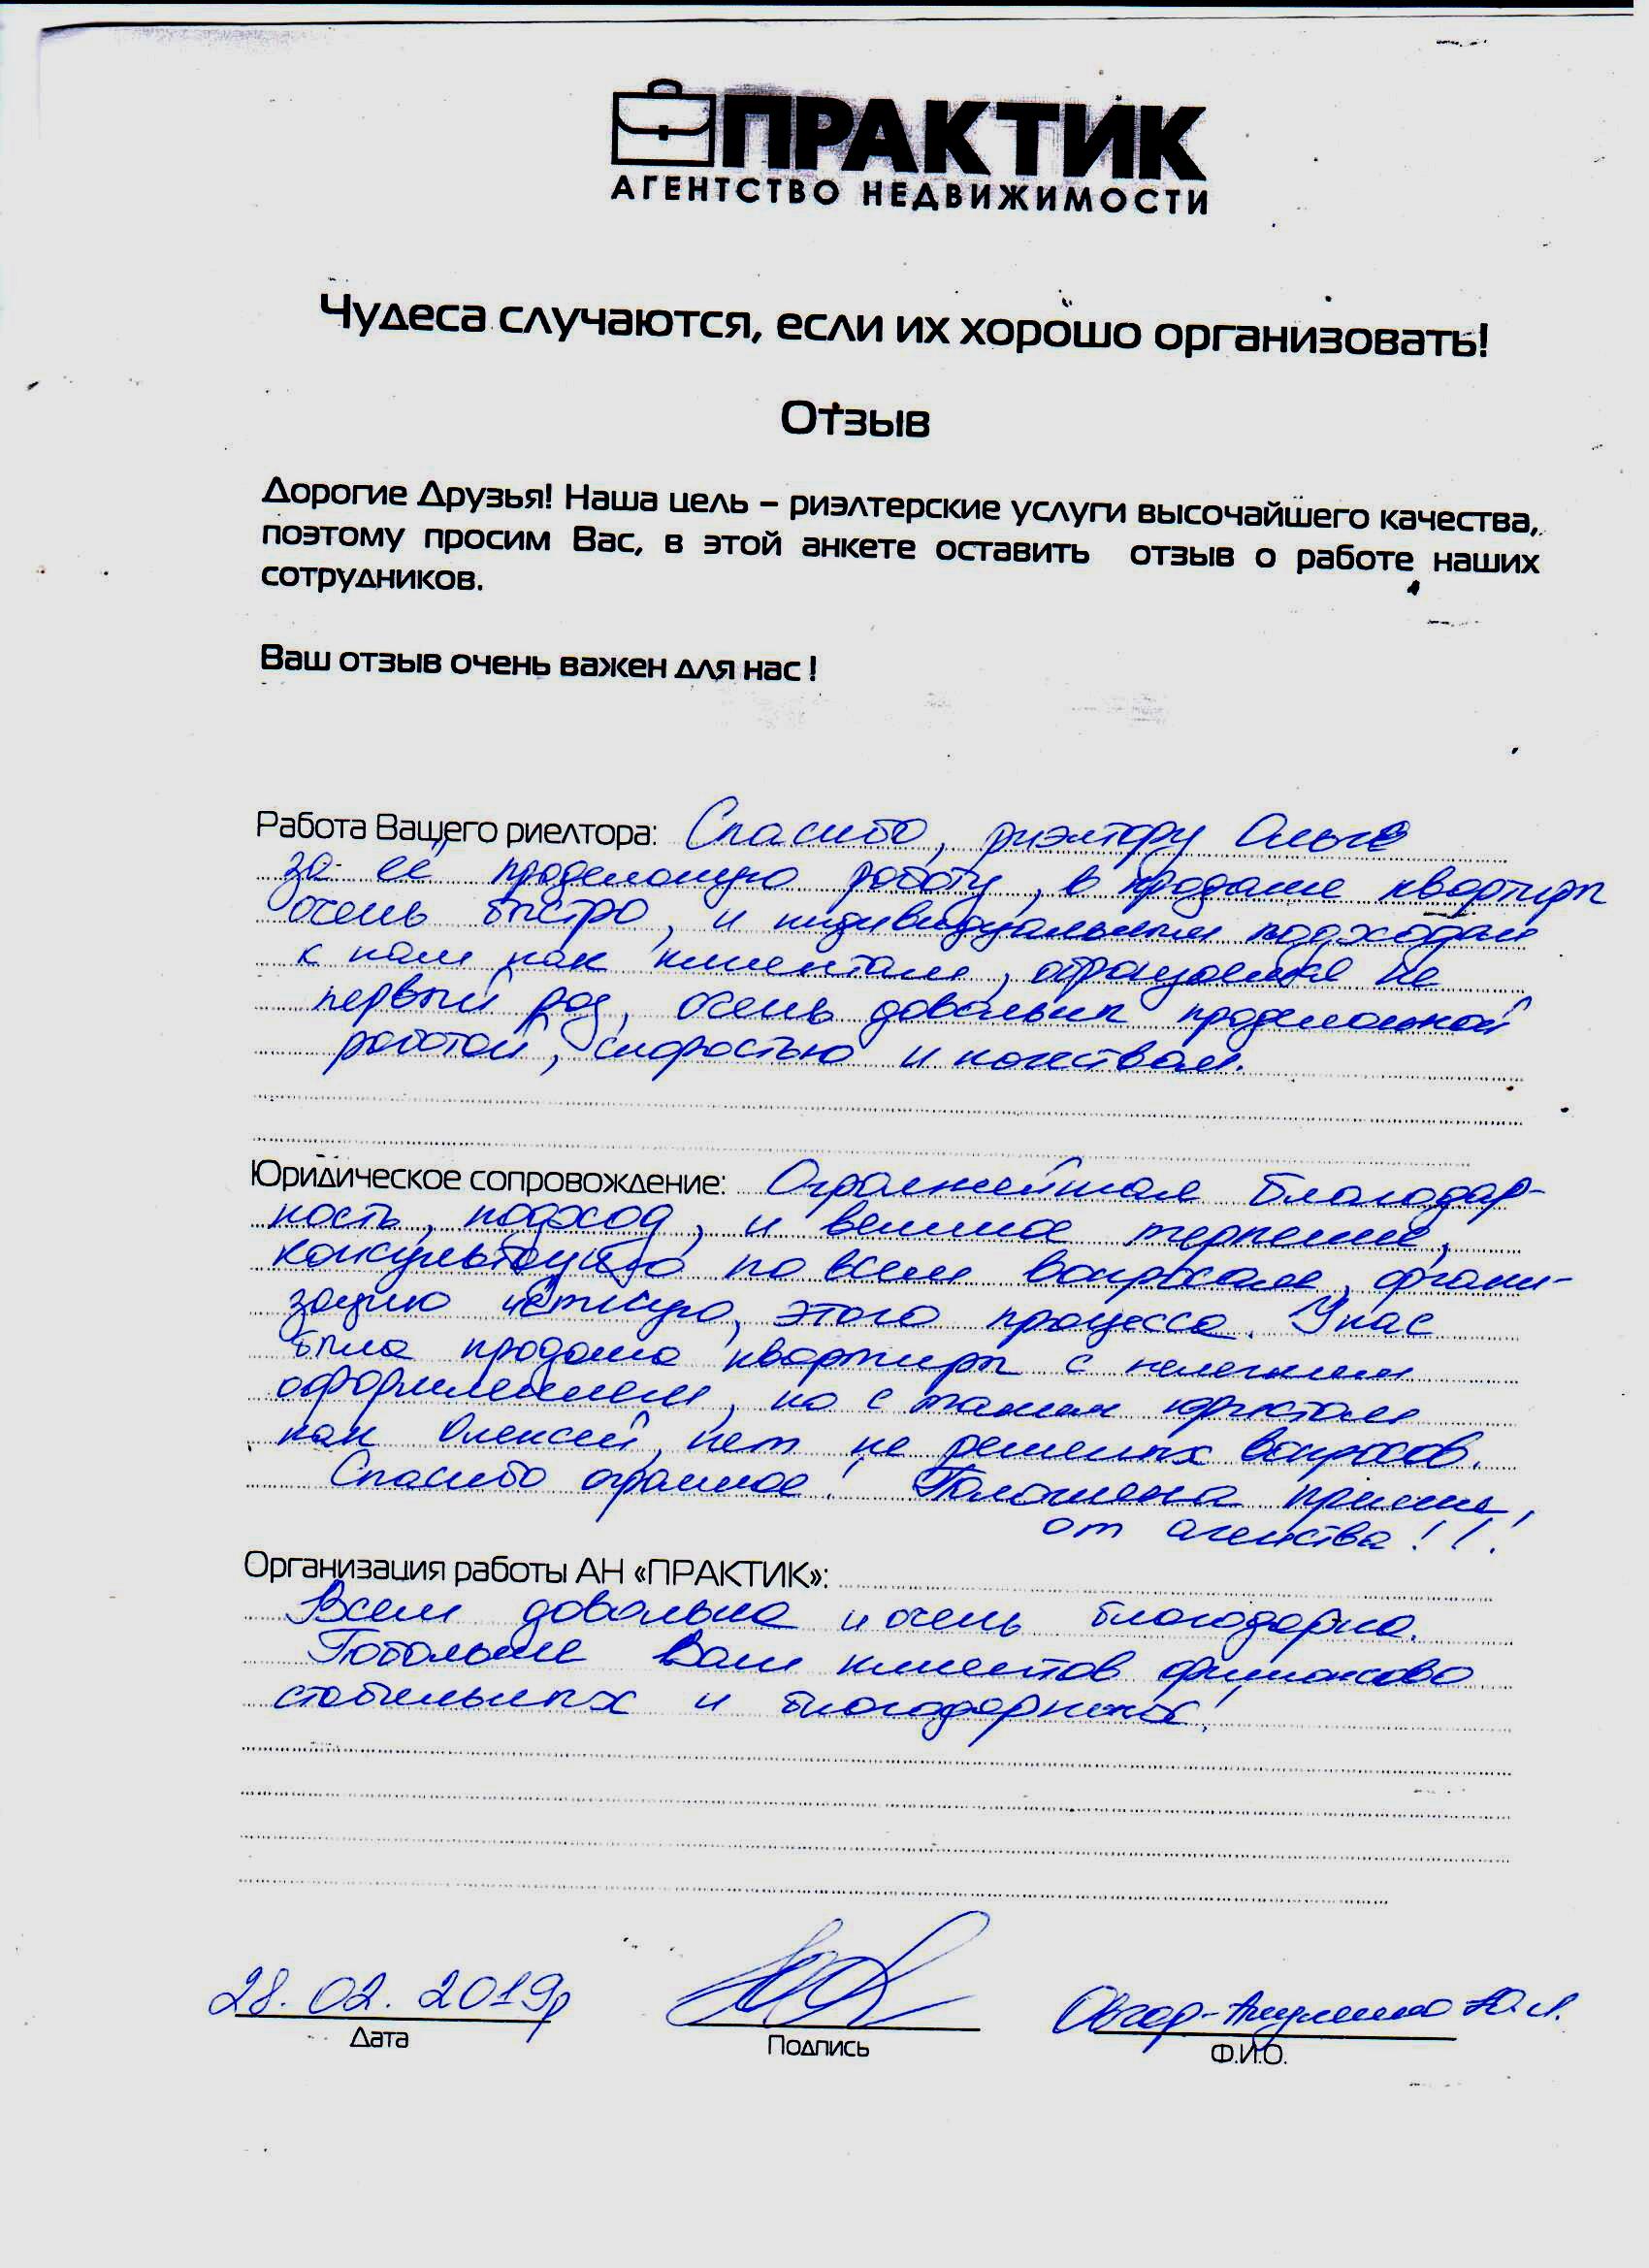 ПРАКТИК
АГЕНТСТВО НЕДВИЖИМОСТИ
Чудеса случаются, если их хорошо организовать!
Отзыв
Дорогие Друзья! Наша цель – риэлтерские услуги высочайшего качества,
поэтому просим Вас, в этой анкете оставить отзыв о работе наших
сотрудников.
Ваш отзыв очень важен для нас !
Работа Вашего риелтора: Спасибо, риэлтору Ольге
за её проделаную работу, в продаже квартиры
очень быстро, и индивидуальным подходом
к нам как клиентам, обращаемся не
первый раз, очень довольны проделанной
работой, скоростью и качеством.
Юридическое сопровождение: Огромнейшая благодар-
ность, подход, и великое терпение,
по всем вопросам, органи-
зацию чёткую, этого процесса. У нас
была продажа квартиры с нелегким
оформлением, но с таким юристом
как Алексей, нет не решеных вопросов.
Спасибо огромное! приемы,
от агенства!!!
Организация работы АН «ПРАКТИК»:
Всем довольна и очень благодарна.
Побольше Вам клиентов финансово
стабильных и благодарных!
28.02.2019г
Дата
Подпись
Ю.А.
Ф.И.О.